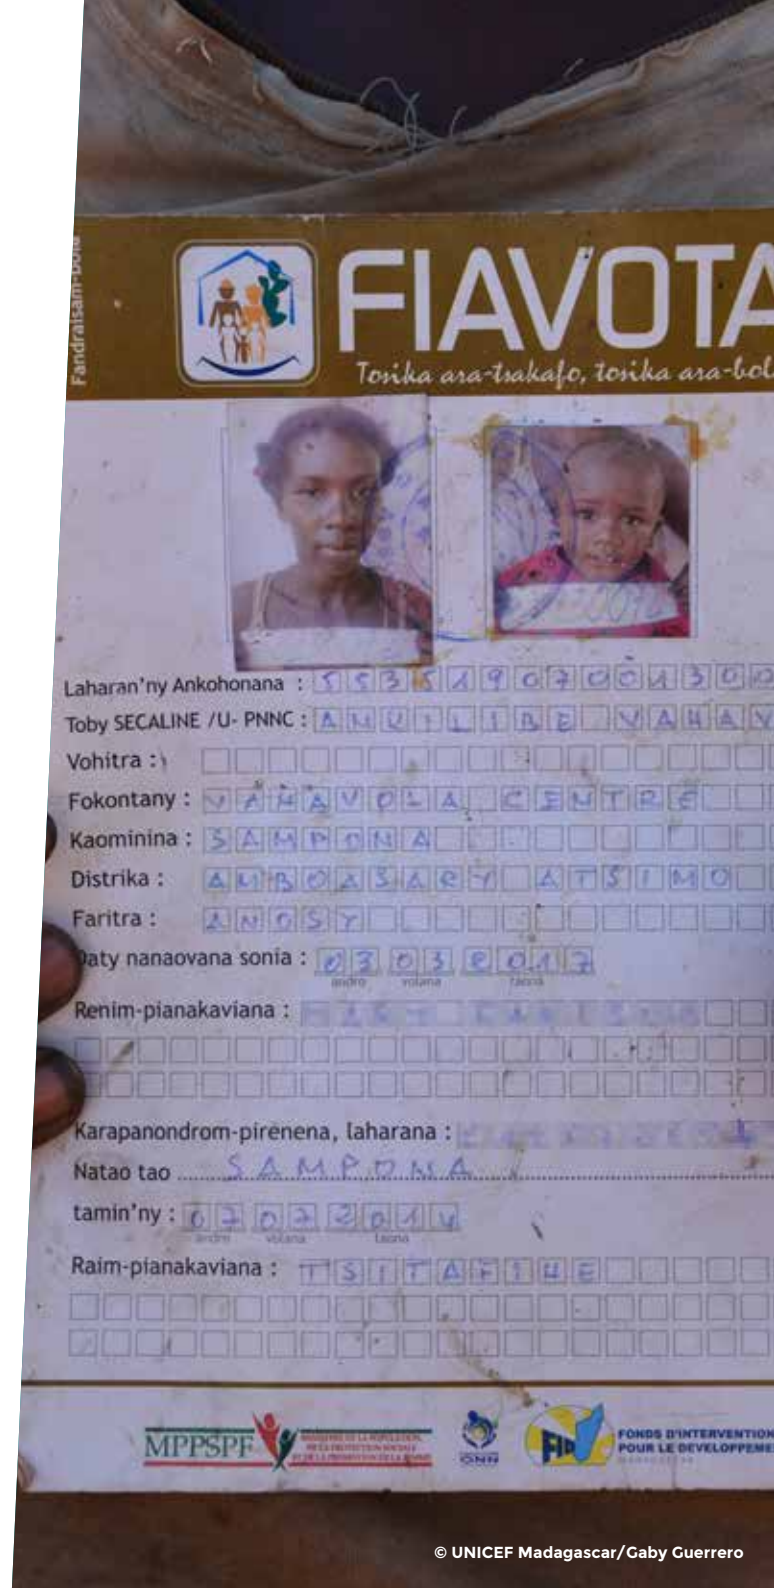 Fandraisam-bola
FIAVOTA
Tosika ara-tsakafo, tosika ara-bola
Laharan'ny Ankohonana : 5535190700130
Toby SECALINE /U- PNNC : ANKILIBE VAHAV
Vohitra :
Fokontany : VAHAVOLA CENTRE
Kaominina : SAMPONA
Distrika : AMBOASARY ATSIMO
Faritra : ANOSY
Daty nanaovana sonia : 03 03 2017
andro volana taona
Renim-pianakaviana :
Karapanondrom-pirenena, laharana :
Natao tao SAMPONA
tamin'ny : 07 07 2014
andro volana taona
Raim-pianakaviana : TSITAFIHE
MPPSPF
MINISTERE DE LA POPULATION,
DE LA PROTECTION SOCIALE
ET DE LA PROMOTION DE LA FEMME
ONN
FID
FONDS D'INTERVENTION
POUR LE DEVELOPPEME
MADAGASCAR
© UNICEF Madagascar/Gaby Guerrero